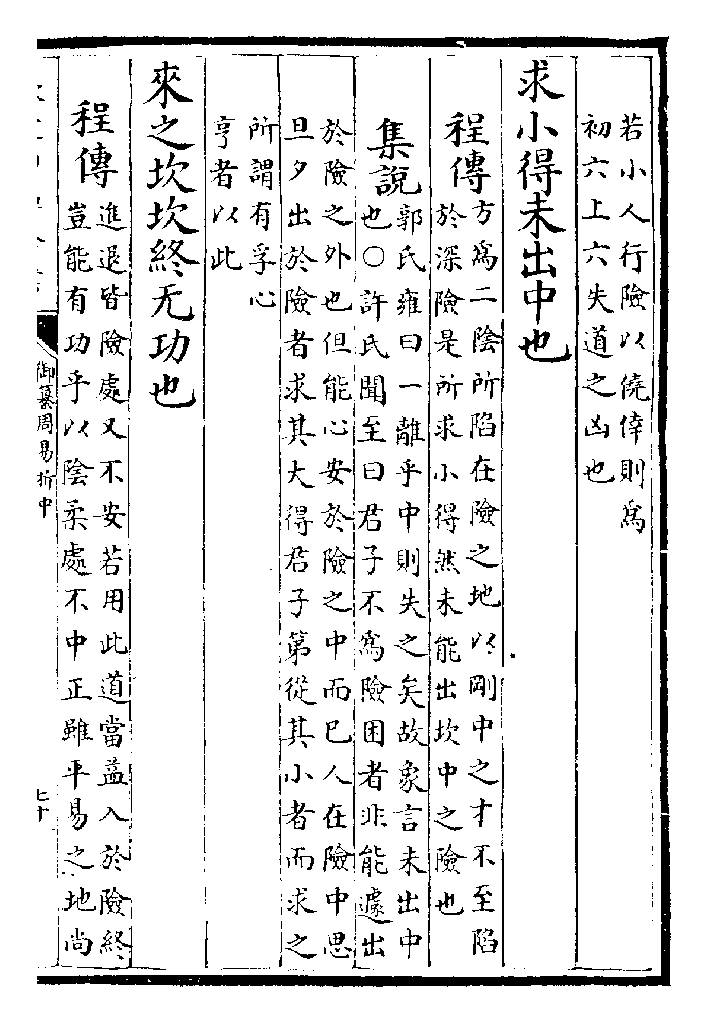 若小人行險以僥倖則爲
初六上六失道之凶也
求小得未出中也
程傳
方爲二陰所陷在險之地以剛中之才不至陷
於深險是所求小得然未能出坎中之險也
集說
郭氏雍曰一離乎中則失之矣故象言未出中
也○許氏聞至曰君子不爲險困者非能遽出
於險之外也但能心安於險之中而已人在險中思
旦夕出於險者求其大得君子第從其小者而求之
所謂有孚心
亨者以此
來之坎坎終无功也
程傳
進退皆險處又不安若用此道當益入於險終
豈能有功乎以陰柔處不中正雖平易之地尚
御纂周易折中
七十